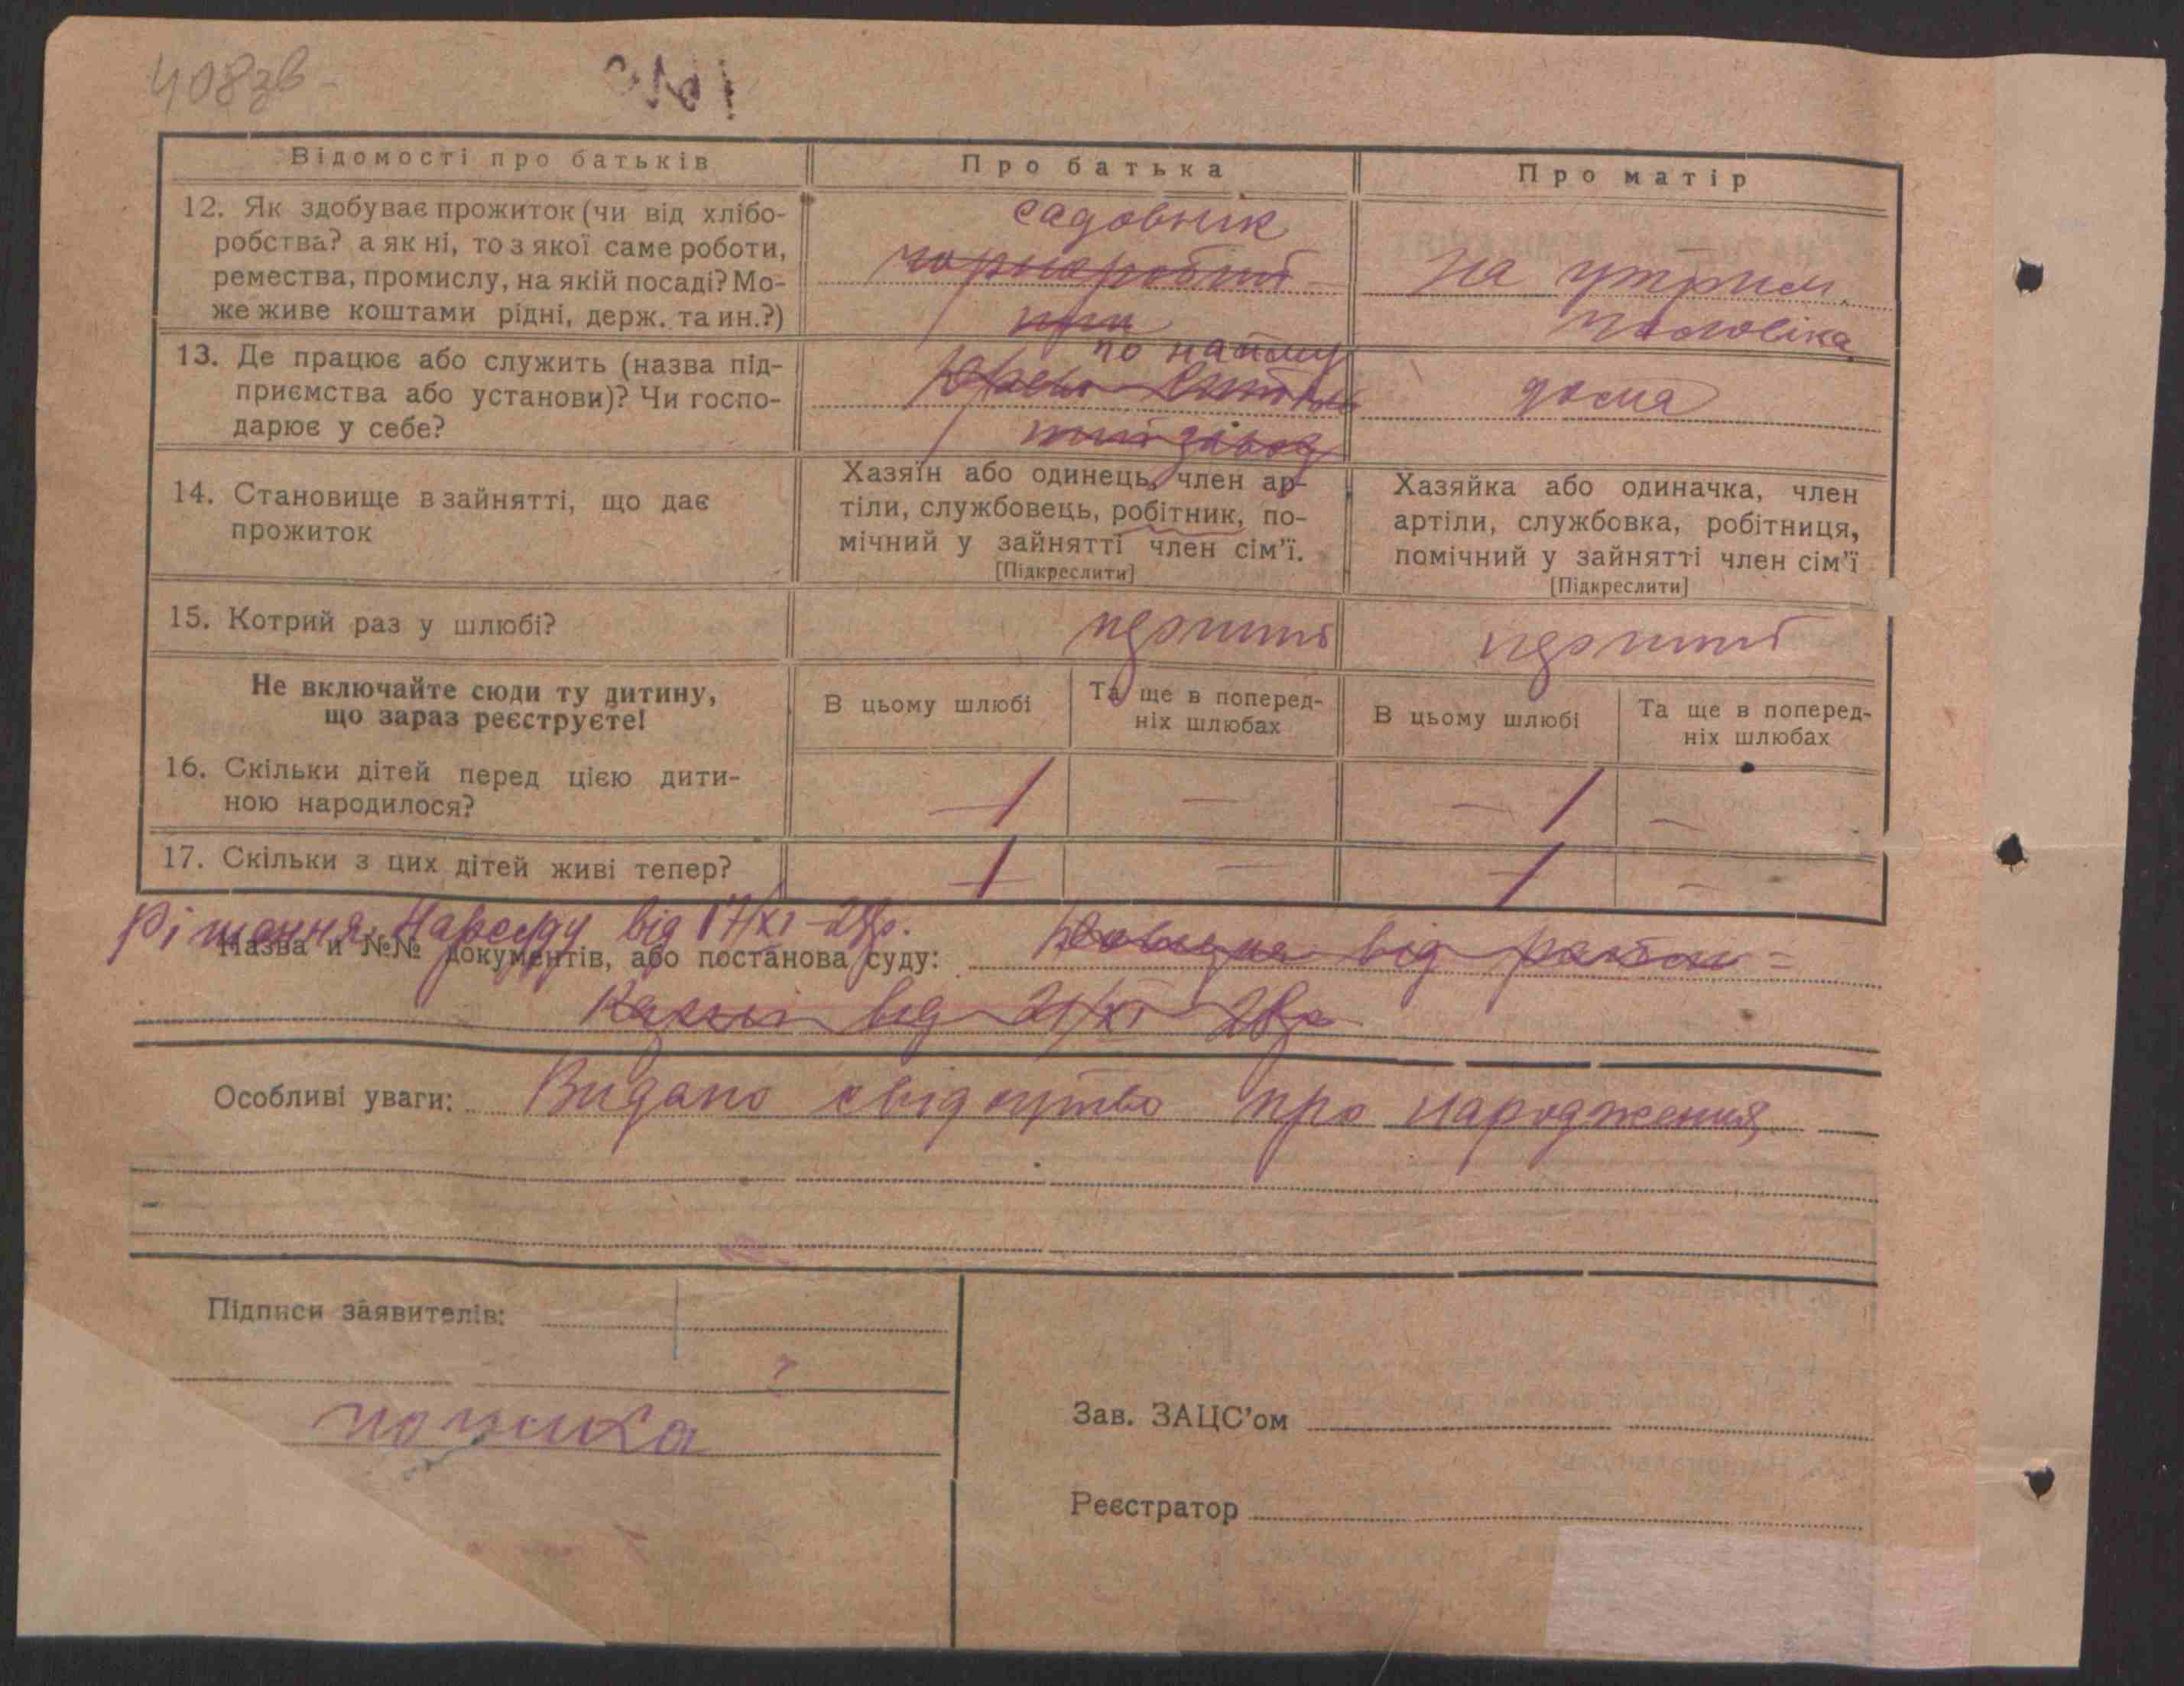 408зв
Відомості про батьків
Про батька
Про матір
12. Як здобуває прожиток (чи від хлібо-
робства? а як ні, то з якої саме роботи,
ремества, промислу, на якій посаді? Мо-
же живе коштами рідні, держ. та ин.?)
садовник
чорноробіт-
ник
на утрим.
чоловіка
13. Де працює або служить (назва під-
приємства або установи)? Чи госпо-
дарює у себе?
по найму
завод
дома
14. Становище в зайнятті, що дає
прожиток
Хазяїн або одинець, член ар-
тіли, службовець, робітник, по-
мічний у зайнятті член сім'ї.
[Підкреслити]
Хазяйка або одиначка, член
артіли, службовка, робітниця,
помічний у зайнятті член сім'ї
[Підкреслити]
15. Котрий раз у шлюбі?
перший
перший
Не включайте сюди ту дитину,
що зараз реєструєте!
В цьому шлюбі
Та ще в поперед-
ніх шлюбах
В цьому шлюбі
Та ще в поперед-
ніх шлюбах
16. Скільки дітей перед цією дити-
ною народилося?
1 — 1 —
17. Скільки з цих дітей живі тепер?
1 — 1 —
Рішення Нарсуду від 17/XI-28р.
Назва и №№ документів, або постанова суду: від
від 21/XI 28р
Особливі уваги: Видано свідоцтво про народження
Підписи заявителів:
Зав. ЗАЦС'ом
Реєстратор